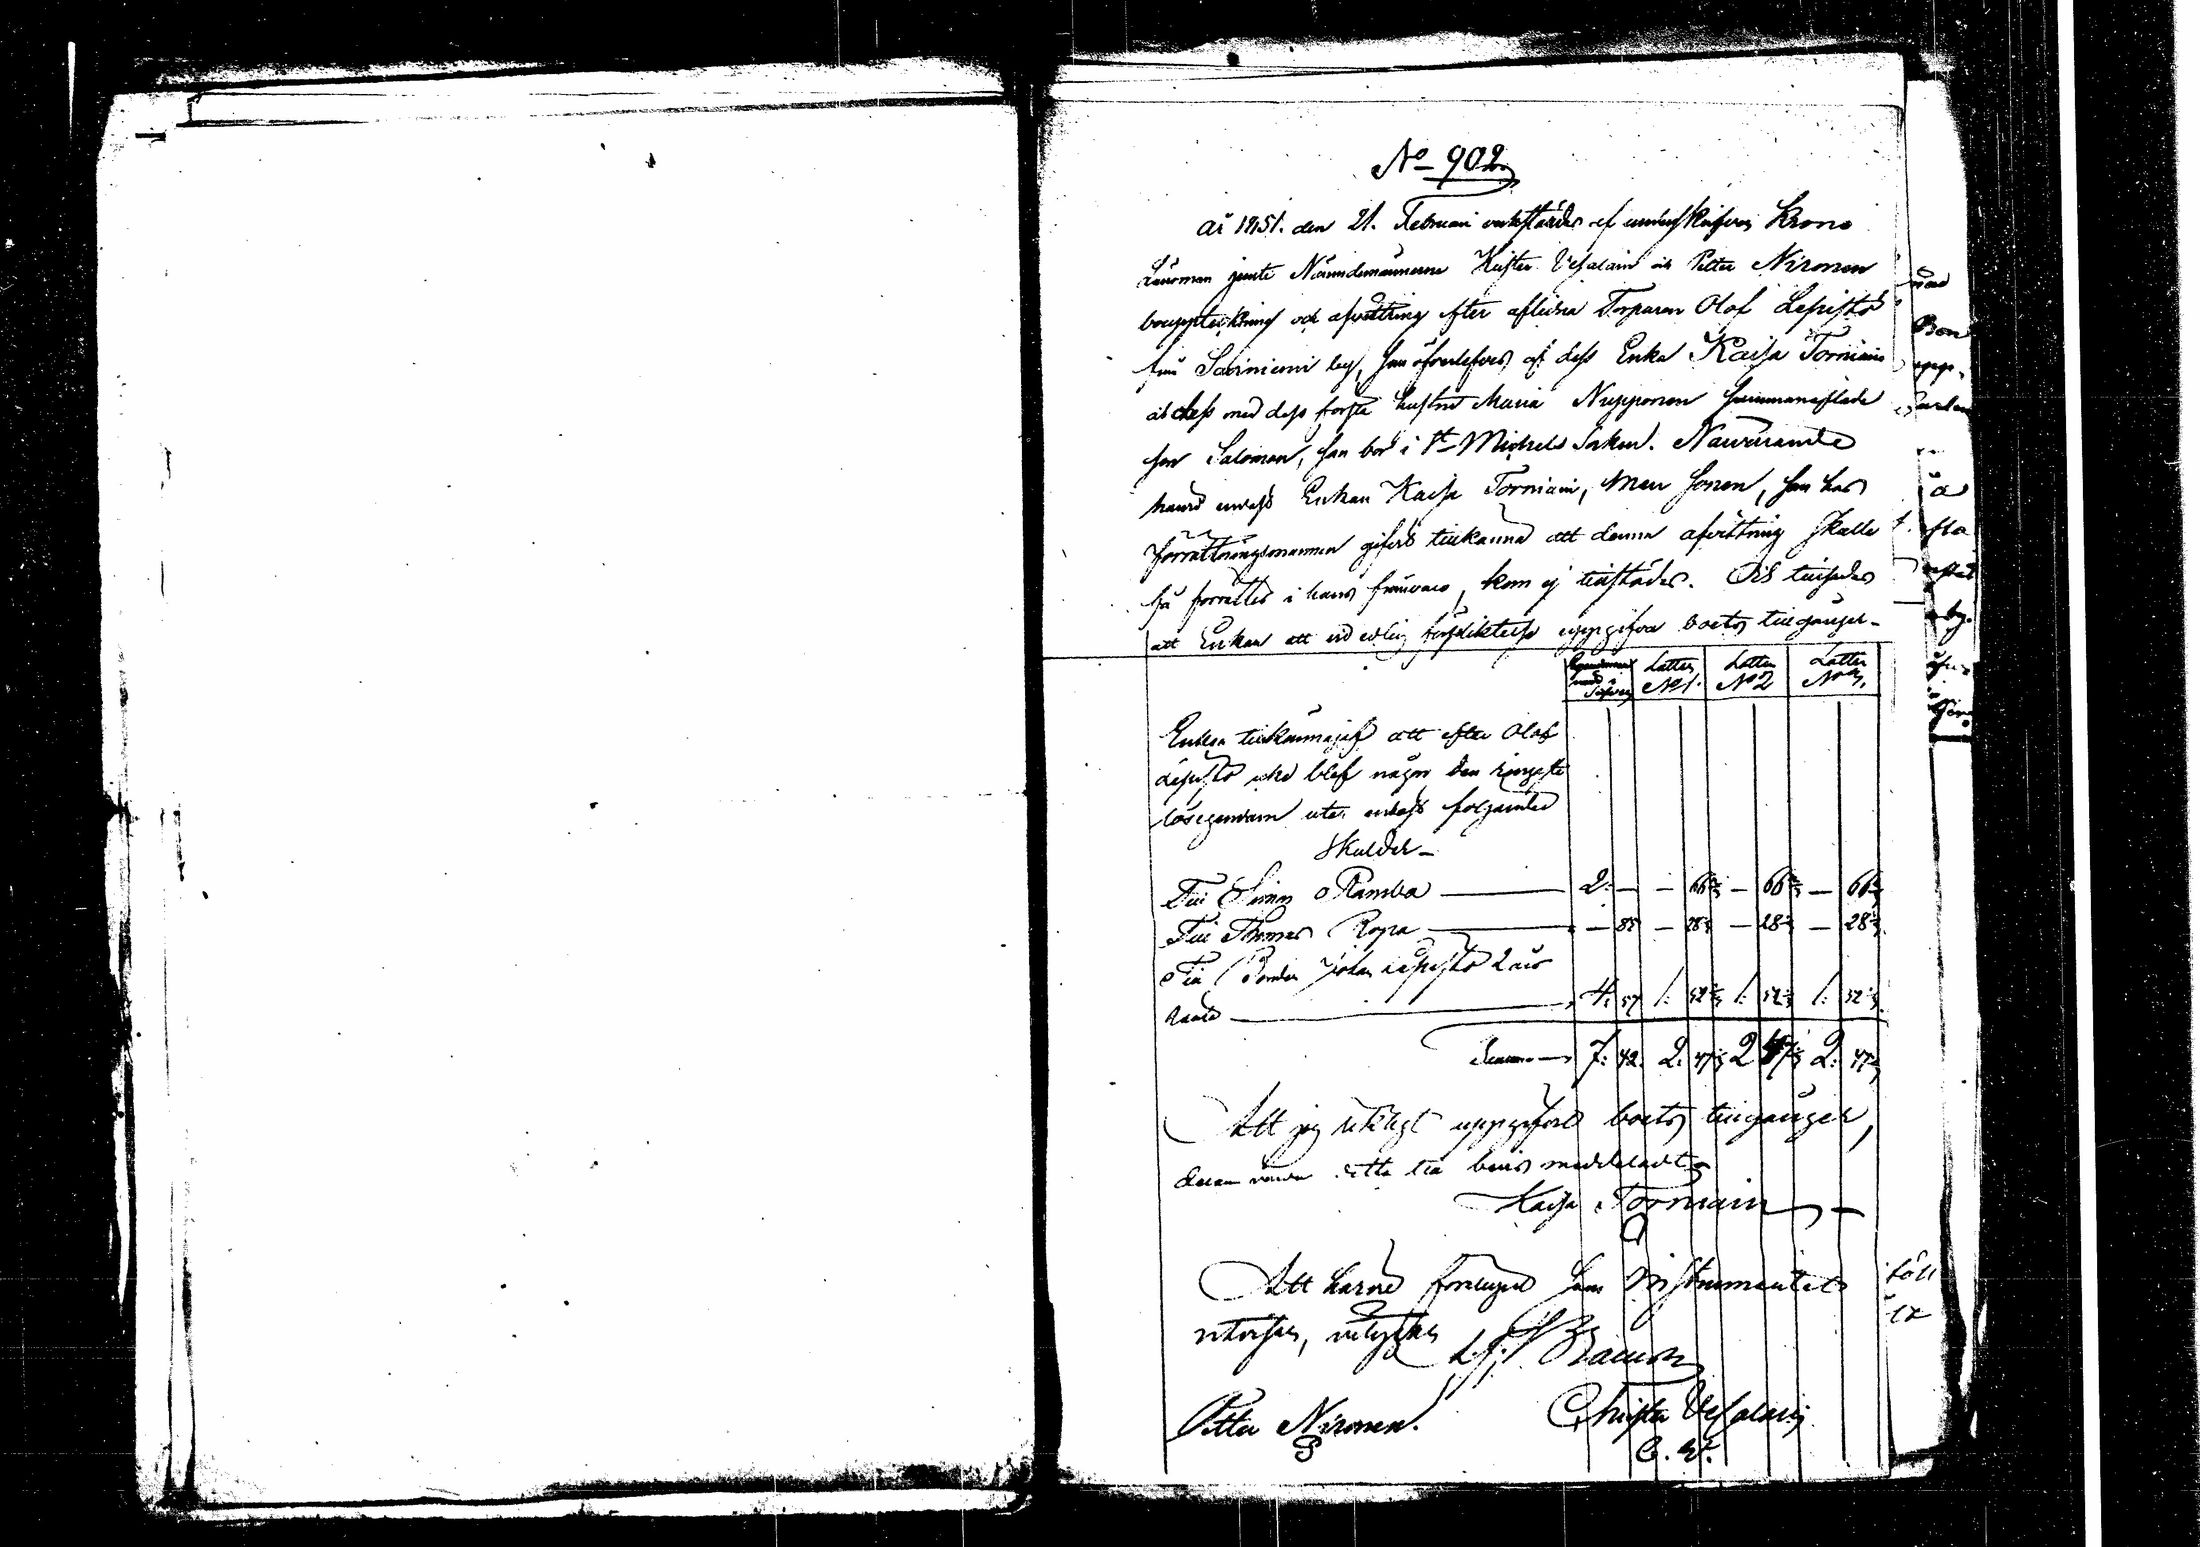 No 902
År 1851. den 21. Februari verkstäldes af underskrifven Krono
Länsman jemte Nämndemännerne Krister Vesalain och Petter Nironen
bouppteckning och afvittring efter aflidna Torparen Olof Lepistö
från Sairiniemi by, som öfverlefves af dess Enka Kaisa Torniain
och dess med dess första hustru Maria Nupponen sammanaflade
son Salomon, som bor i St Michels Socken. Närvarande
hvarvid endast Enkan Kaisa Torniain, Men sonen, som har
förrättningsmannen gifvit tillkänna att denna afvittring skulle
få förrättas i hans frånvaro, kom ej tillstädes. Och tillsades
att Enkan att vid edelig förpliktelse uppgifva boets tillgångar
Silfver
Lotten No 1.
Lotten No 2
Lotten No 3.
Enkan tillkännagaf att efter Olof
Lepistö icke blef någon den ringaste
lösegendom utan endast följande
skulder
Till Simon Ramba 2: — — 66 2/3 — 66 2/3 — 66 2/3
Till Thomas Ropa — 85 — 28 1/3 — 28 1/3 — 28 1/3
Till Bonden Johan Lepistö 2 års
4: 57 1: 52 1/3 1: 52 1/3 1: 52 1/3
Summa 7: 42. 2: 47 1/3 2 47 1/3 2: 47 1/3
Att jag riktigt uppgifvit boets tillgångar,
derom varder detta till bevis meddeladt
Kaisa Torniain
Att härvid föreluppit som Instrumentet
utvisar, intygas
Petter Nironen.
Christer Vesalain
C. V.